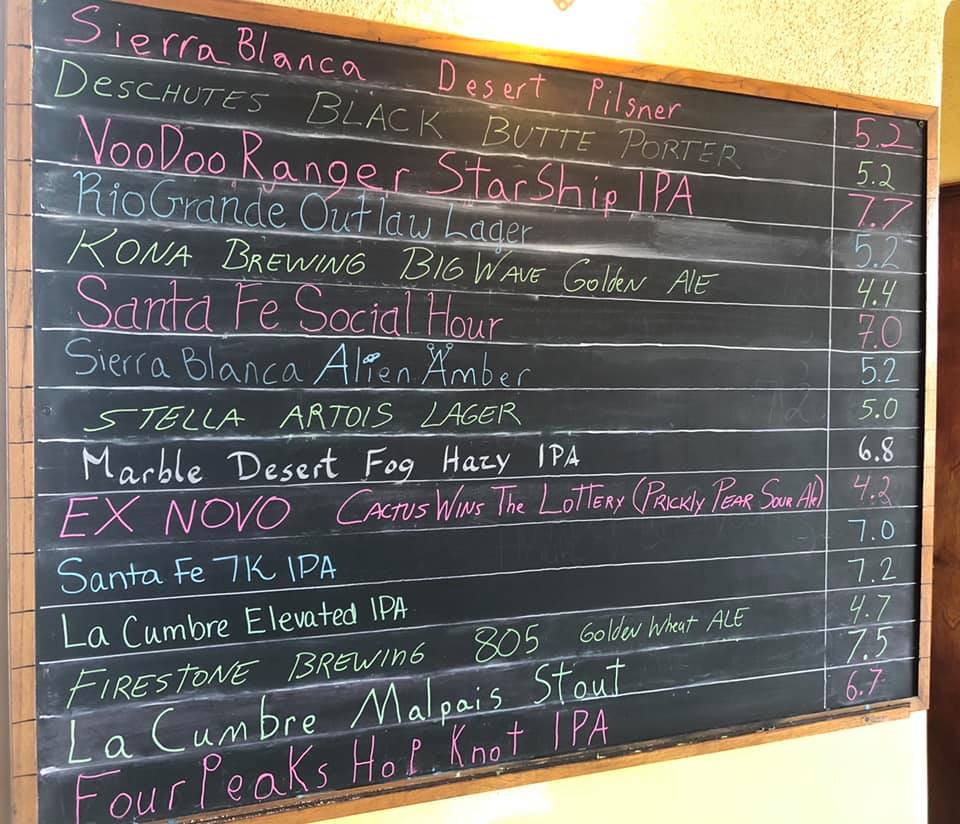 Sierra Blanca Desert Pilsner 5.2
DESCHUTES BLACK BUTTE PORTER 5.2
VooDoo Ranger StarShip IPA 7.7
RioGrande Outlaw Lager 5.2
KONA BREWING BIG WAVE Golden AlE 4.4
Santa Fe Social Hour 7.0
Sierra Blanca Alien Amber 5.2
STELLA ARTOIS LAGER 5.0
Marble Desert Fog Hazy IPA 6.8
EX NOVO CACTUS WINS The LOTTERY (PRICKLY PEAR SOUR Ale) 4.2
Santa Fe 7K IPA 7.0
La Cumbre Elevated IPA 7.2
FIRESTONE BREWING 805 Golden Wheat ALE 4.7
La Cumbre Malpais Stout 7.5
Four Peaks Hop Knot IPA 6.7